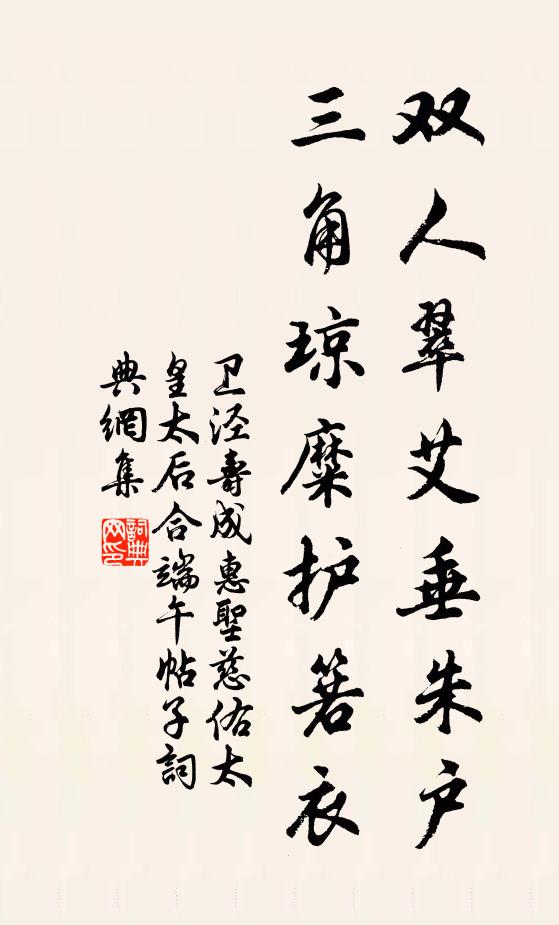 双人翠艾垂朱户
三角琼糜护箬衣
卫泾壽成惠聖慈佑太
皇太后合端午帖子詞
典網集
詞典
网印